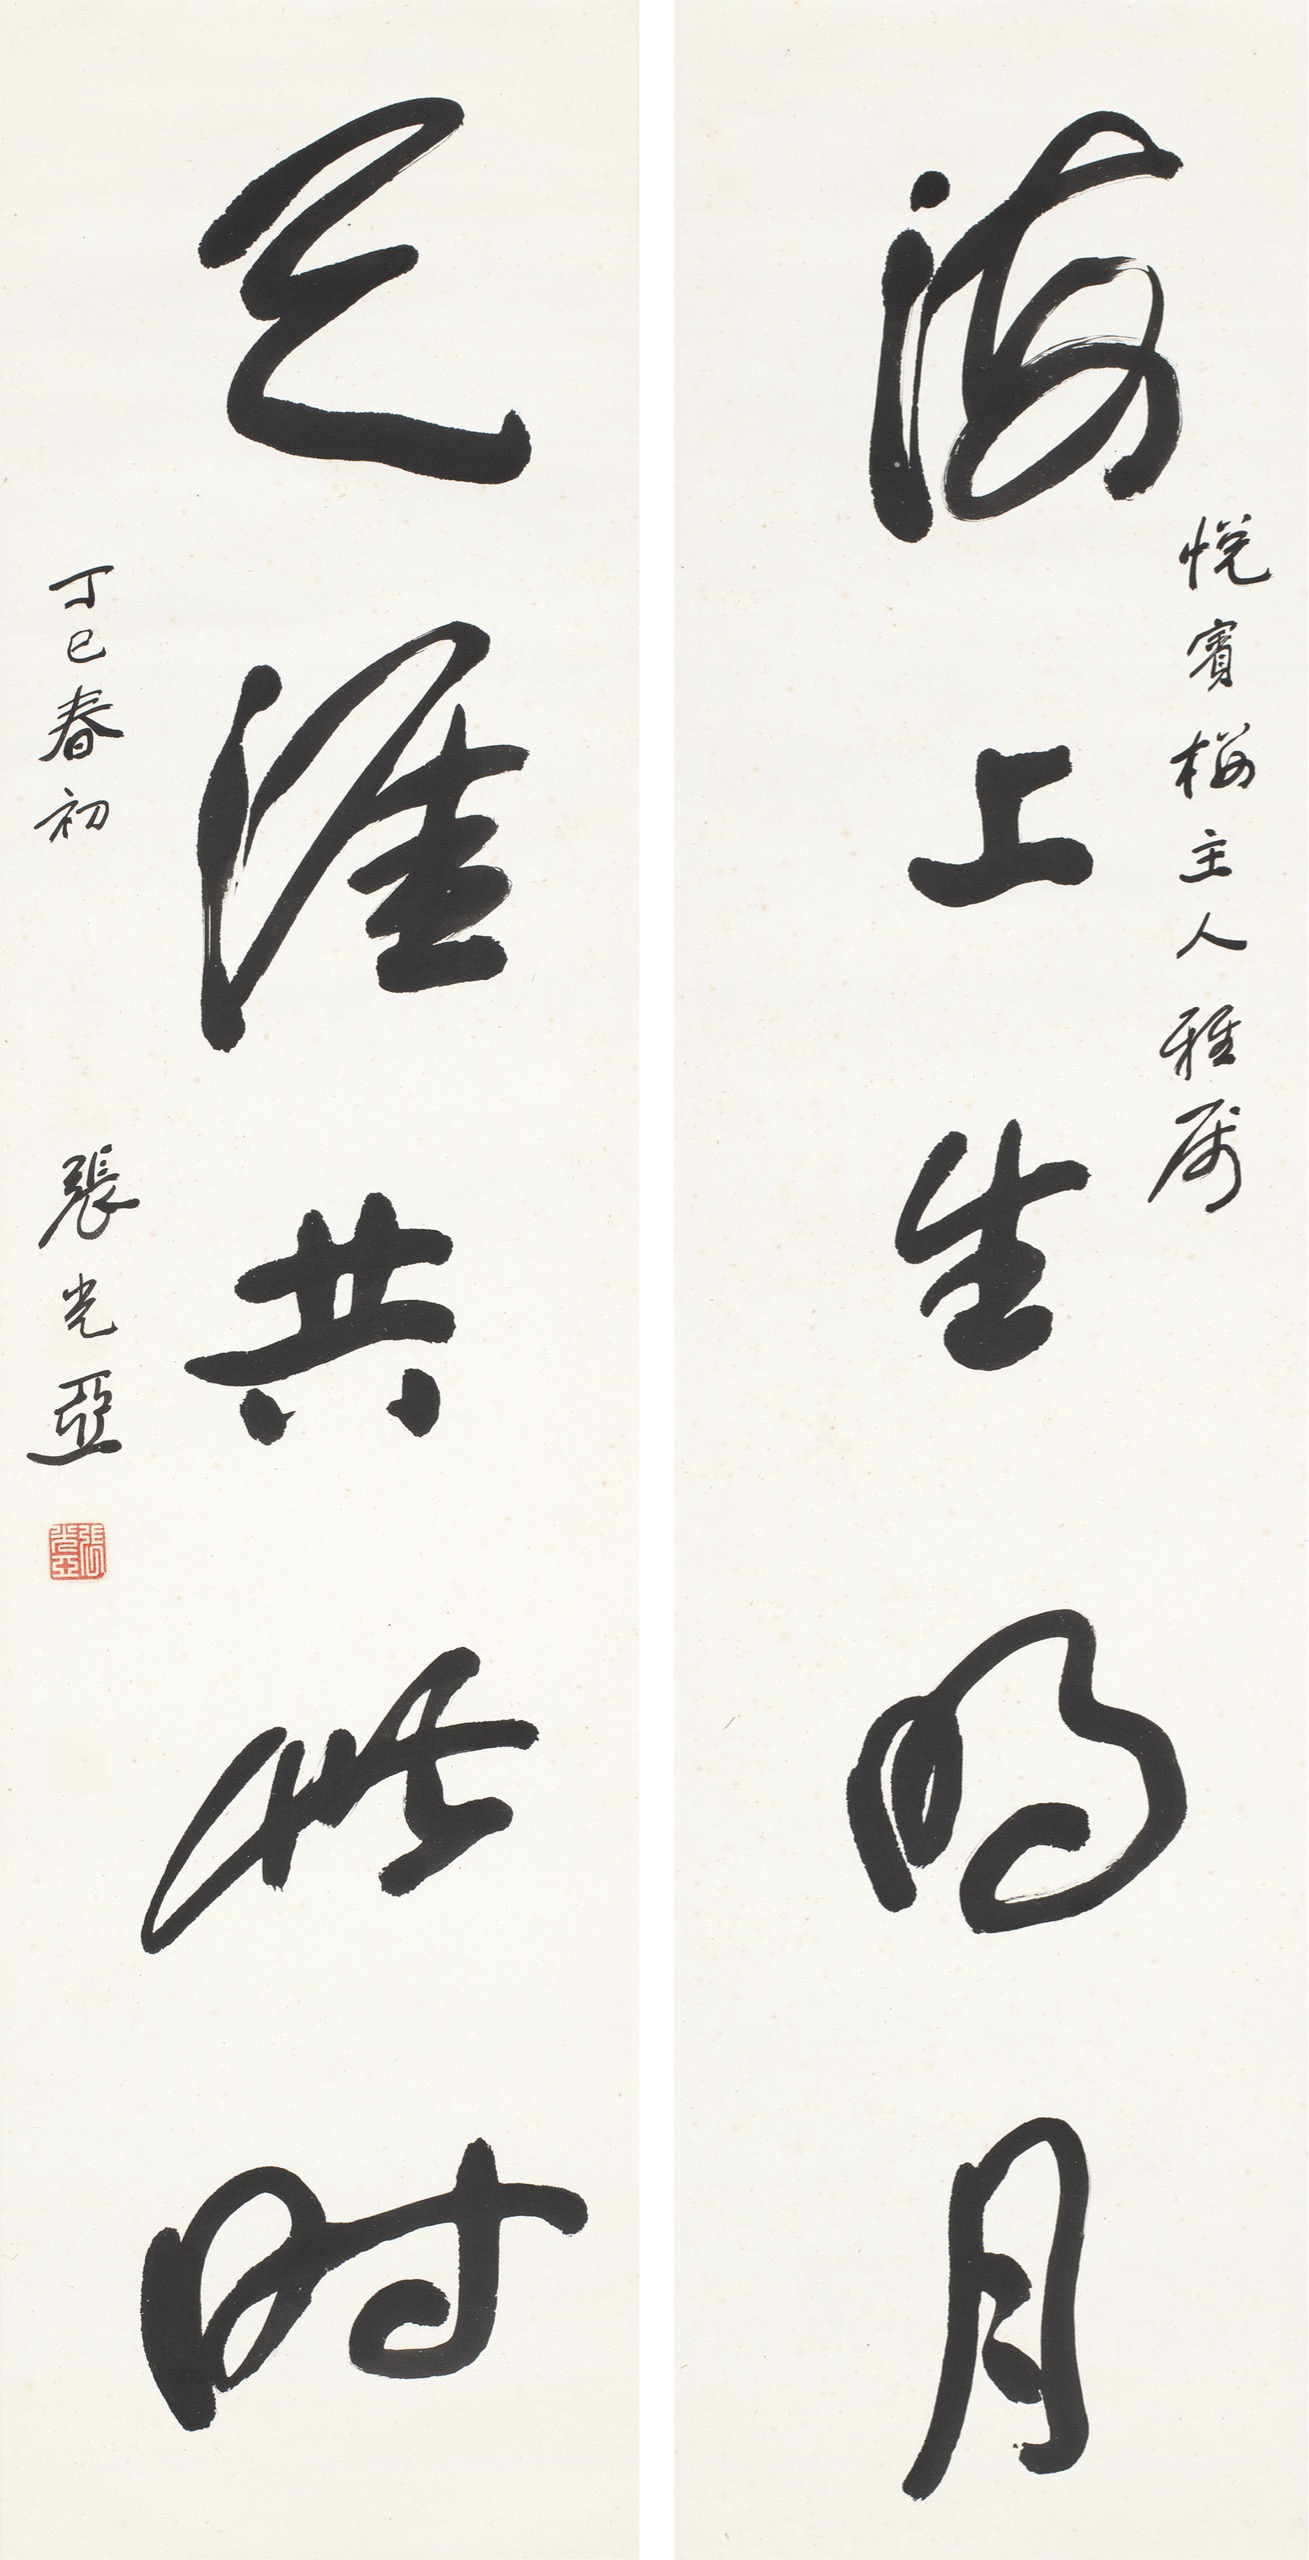 海上生明月
悦賓楼主人雅属
天涯共此時
丁巳春初
張光亞
張光亞